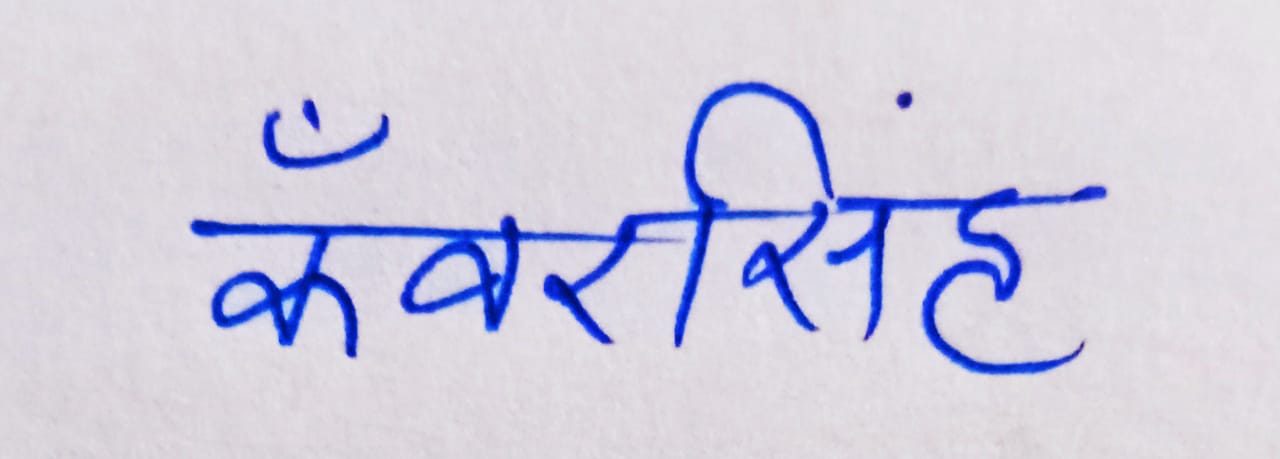 कँवरसिंह